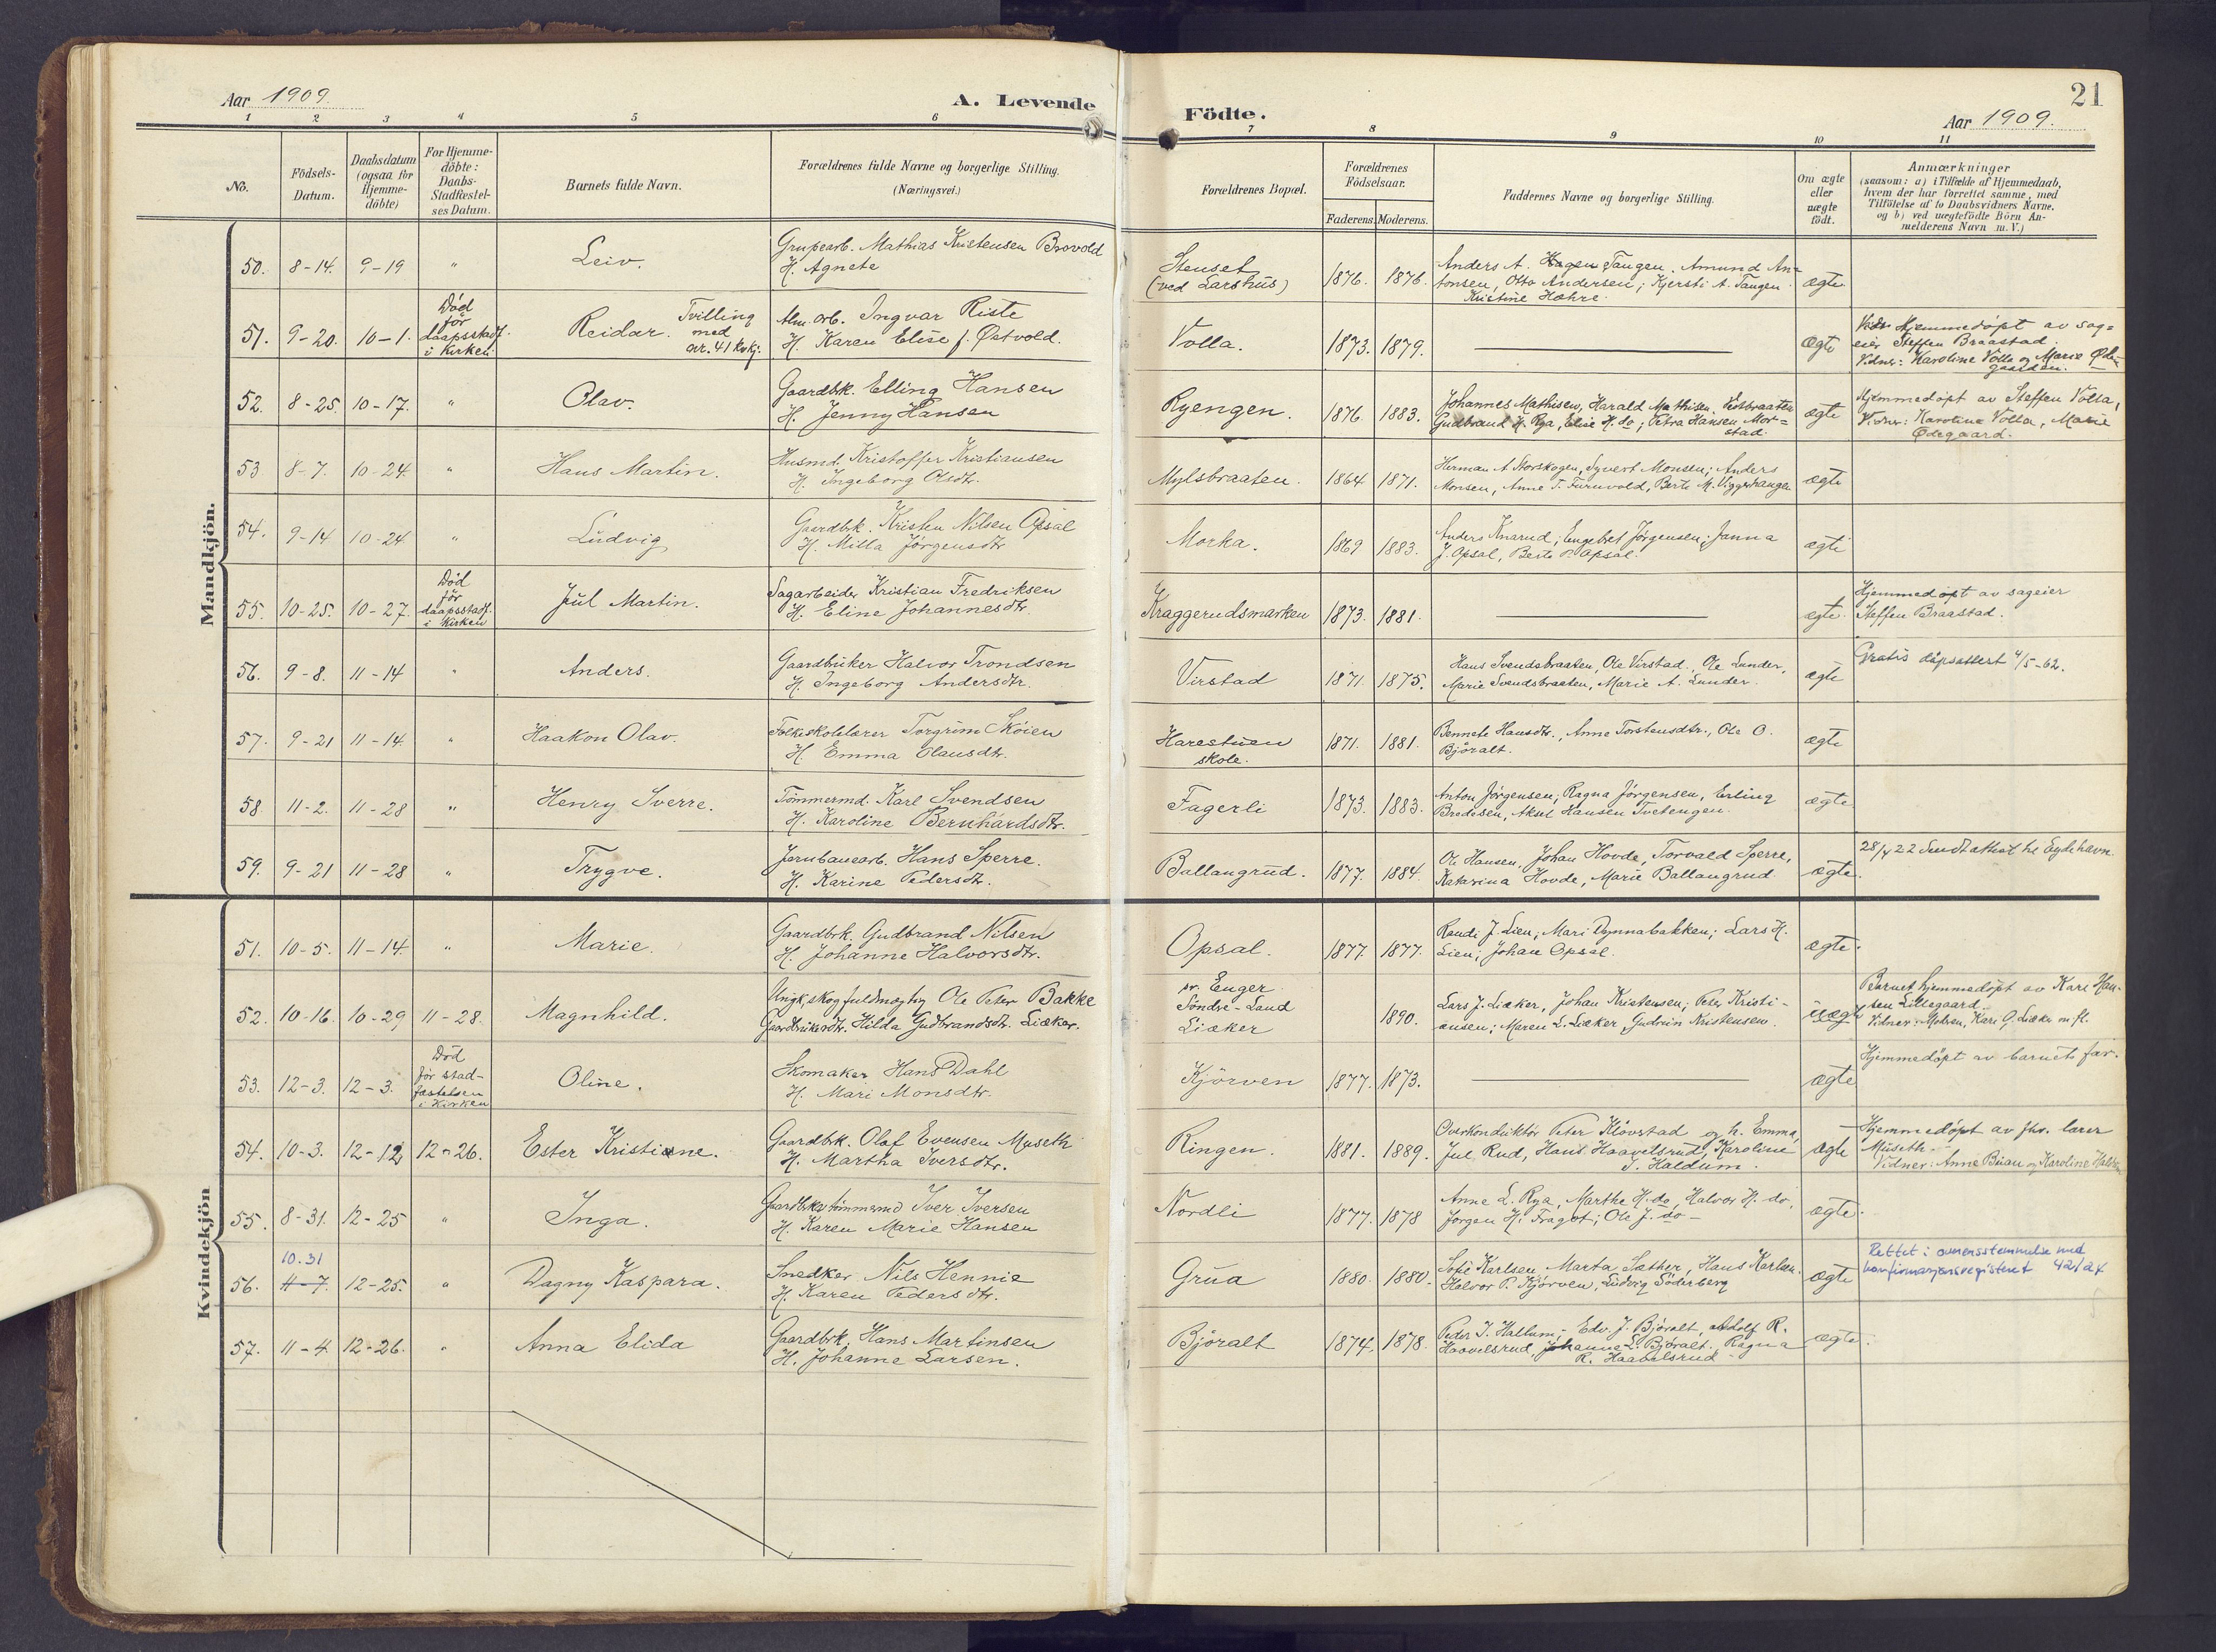 21
Aar 1909.
A. Levende
Födte.
Aar 1909.
1 2 3 4 5 6 7 8 9 10 11
No.
Födsels-
Datum.
Daabsdatum
(ogsaa for
Hjemme-
döbte)
For Hjemme-
döbte:
Daabs-
Stadfæstel-
ses Datum.
Barnets fulde Navn.
Forældrenes fulde Navne og borgerlige Stilling.
(Næringsvei.)
Forældrenes Bopæl.
Forældrenes
Födselsaar.
Faderens. Moderens.
Faddernes Navne og borgerlige Stilling.
Om ægte
eller
uægte
födt.
Anmærkninger
(saasom: a) i Tilfælde af Hjemmedaab,
hvem der har forrettet samme, med
Tilföielse af to Daabsvidners Navne.
og b) ved uegtefödte Börn An-
melderens Navn m. V.)
Mandkjön.
50. 8-14. 9-19 "
Leiv.
Grupearb. Mathias Kristensen Brovold
H. Agnete
Stenset
(ved Larshus)
1876. 1876.
Anders A. Hagen Tangen. Amund An=
tonsen, Otto Andersen; Kjersti A. Tangen
Kristine Hæhre.
ægte
51. 9-20. 10-1.
Död
för
daapsstadf.
i Kirken.
Reidar.
Tvilling
med
nr. 41 kvkj.
Alm. arb. Ingvar Riste
H. Karen Elise f. Østvold.
Volla.
1873. 1879.
ægte
Hjemmedöpt av sag=
eier Steffen Braastad.
Vidner: Karoline Volla og Marie Øde-
gaarden.
52. 8-25. 10-17. "
Olav.
Gaardbk. Elling Hansen
H. Jenny Hansen
Ryengen.
1876 1883.
Johannes Mathisen, Harald Mathisen,
Gudbrand H. Rya, Elise H. do; Petra Hansen Mor=
stad.
ægte
Hjemmedöpt av Steffen Volla,
Vidner: Karoline Volla, Marie
Ødegaard.
53 8-7. 10-24. "
Hans Martin.
Husmd. Kristoffer Kristiansen
H. Ingeborg Olsdtr.
Mylsbraaten.
1864 1871.
Herman A Storskogen, Syvert Monsen; Anders
Monsen, Anne T. Furuvold, Berte M. Viggerhaugen
ægte
54. 9-14 10-24 "
Ludvig
Gaardbk. Kristen Nilsen Opsal
H. Milla Jörgensdtr
Morka.
1869 1883.
Anders Knarud; Engebret Jørgensen; Janna
J. Opsal, Berte P. Opsal.
ægte
55. 10-25. 10-27.
Död
för
daapsstadf.
i Kirken
Jul Martin.
Sagarbeider Kristian Fredriksen
H. Eline Johannesdtr.
Kraggerudsmarken
1873. 1881.
ægte.
Hjemmedöpt av sageier
Steffen Braastad.
56. 9-8. 11-14 "
Anders.
Gaardbruker Halvor Trondsen
H. Ingeborg Andersdtr.
Virstad
1871 1875.
Hans Svendsbraaten, Ole Virstad, Ole Lunder,
Marie Svendsbraaten, Marie A. Lunder.
ægte
Gratis dåpsattest 4/5-62.
57. 9-21 11-14. "
Haakon Olav.
Folkeskolelærer Torgrim Skøien
H. Emma Olausdtr.
Harestuen
skole.
1871. 1881.
Bennete Hansdtr., Anne Torstensdtr., Ole O.
Björalt.
ægte
58 11-2. 11-28 "
Henry Sverre.
Tömmermd. Karl Svendsen
H. Karoline Bernhardsdtr.
Fagerli
1873. 1883.
Anton Jörgensen, Ragna Jörgensen, Erling
Bredesen, Aksel Hansen Tvetengen.
ægte
59. 9-21 11-28 "
Trygve.
Jernbanearb. Hans Sperre.
H. Karine Pedersdtr.
Ballangrud.
1877. 1884.
Ole Hansen, Johan Hovde, Torvald Sperre,
Katarina Hovde, Marie Ballangrud
ægte.
28/4 22 Sendt attest til Eydehavn.
Kvindekjön
51. 10-5. 11-14. "
Marie.
Gaardbrk. Gudbrand Nilsen
H. Johanne Halvorsdtr.
Opsal.
1877. 1877.
Randi J. Lien; Mari Dynnabakken; Lars H.
Lien; Johan Opsal.
ægte.
52. 10-16. 10-29 11-28.
Magnhild.
Ungk. skogfuldmægtig Ole Peter Bakke
Gaardbrukerdtr. Hilda Gudbrandsdtr. Liæker.
Enger
Söndre-Land
Liæker
1890.
Lars J. Liæker, Johan Kristensen; Peter Kristi-
ansen; Maren L. Liæker, Gudrun Kristensen.
uægte
Barnet hjemmedöpt av Kari Han-
sen Lillegaard.
Vidner: Modren, Kari G. Liæker m fl.
53. 12-3. 12-3.
Död
för stad-
fæstelsen
i Kirken
Oline.
Skomaker Hans Dahl
H. Mari Monsdtr.
Kjörven
1877. 1873.
ægte
Hjemmedöpt av barnets far.
54. 10-3. 12-12 12-26.
Ester Kristiane.
Gaardbrk. Olaf Evensen Museth
H. Martha Iversdtr.
Ringen.
1881. 1889.
Overkonduktör Peter Klövstad og h. Emma,
Jul Rud, Hans Haavelsrud, Karoline
T. Haldum.
ægte
Hjemmedöpt av fhv. lærer
Museth.
Vidner: Anne Buan og Karoline Haldum
55. 8-31. 12-25 "
Inga.
Gaardbk tömmermd Iver Iversen
H. Karen Marie Hansen
Nordli
1877. 1878
Anne L. Rya, Marthe H. do, Halvor H. do,
Jorgen H. Fragot; Ole J. do-
ægte.
10.31
56. 11-7. 12-25. "
Dagny Kaspara.
Snedker Nils Hennie
H. Karen Pedersdtr.
Grua
1880. 1880.
Sofie Karlsen, Marta Sæther, Hans Karlsen.
Halvor P. Kjörven, Ludvig Söderberg
ægte
Rettet i overensstemmelse med
konfirmasjonsregisteret 42/24
57. 11-4. 12-26. "
Anna Elida
Gaardbrk. Hans Martinsen
H. Johanne Larsen.
Björalt
1874. 1878.
Peder I. Hallum; Edv. J. Björalt, Adolf R.
Haavelsrud, Johanne L. Björalt, Ragna
R. Haavelsrud
ægte.